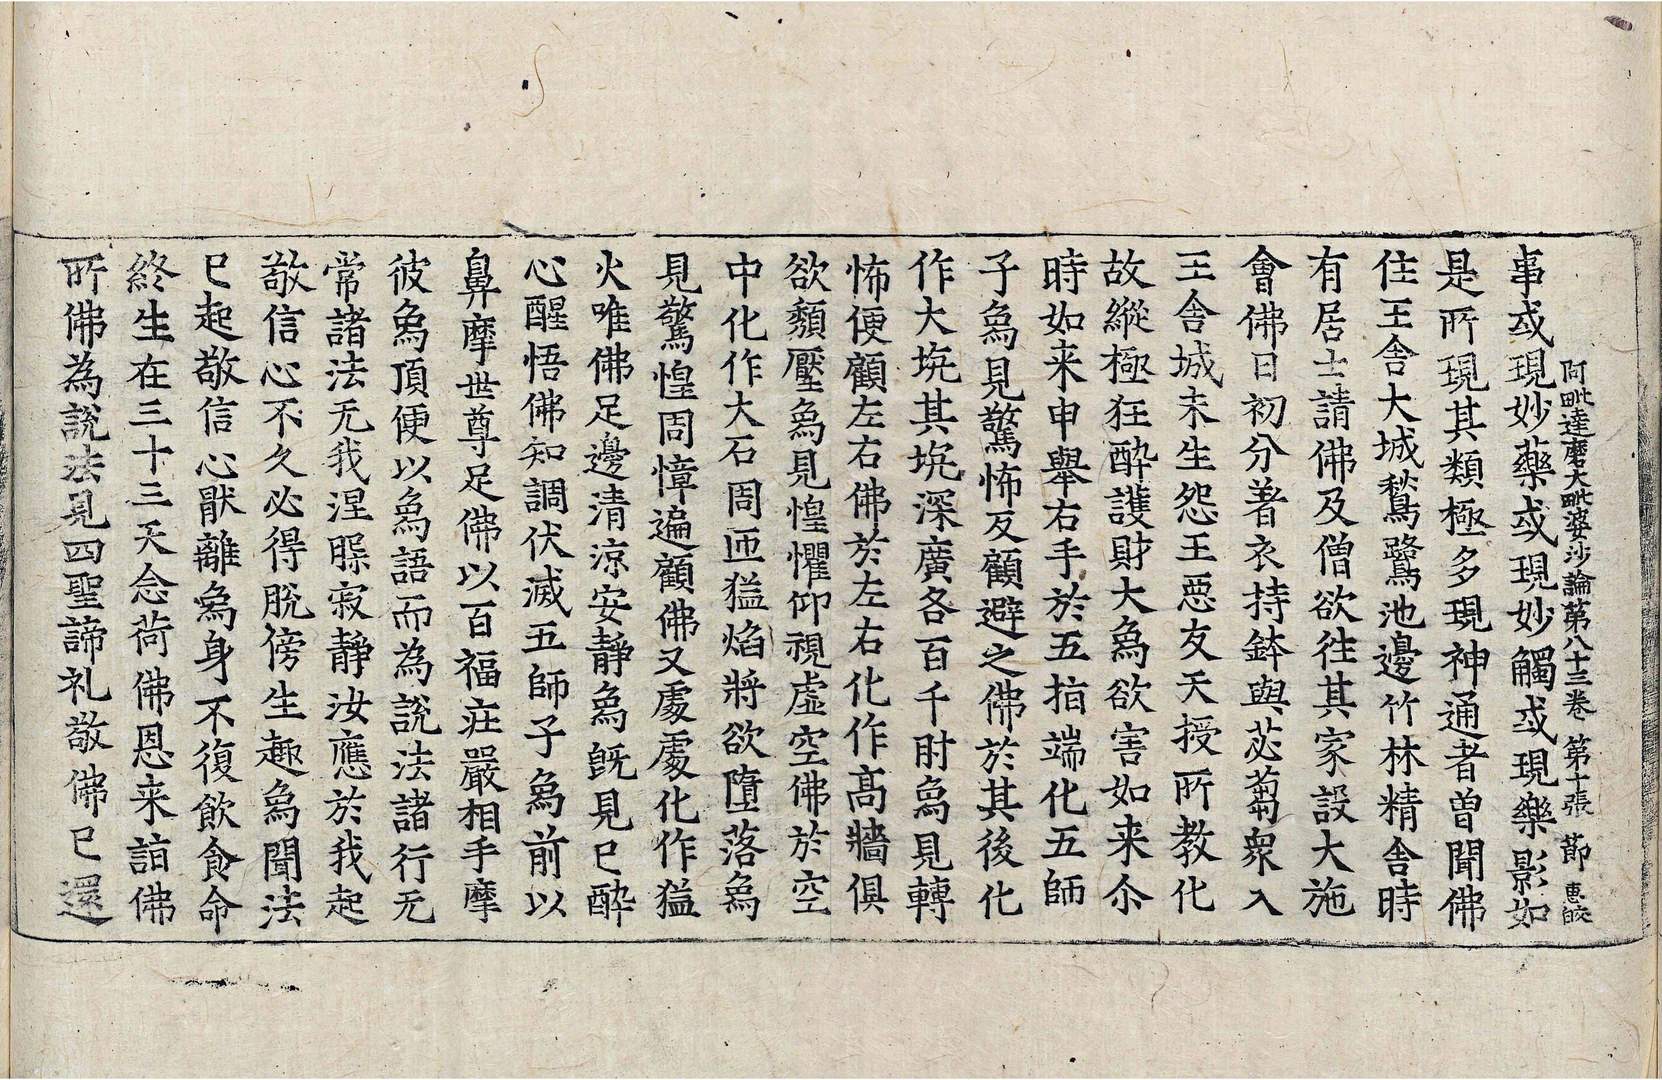 阿毗達磨大毗婆沙論第八十三卷 第十張 節 惠皎
事或現妙藥或現妙觸或現樂影如
是所現其類極多現神通者曽聞佛
住王舍大城鶖鷺池邊竹林精舍時
有居士請佛及僧欲往其家設大施
會佛日初分著衣持鉢與苾蒭衆入
王舍城未生怨王惡友天授所教化
故縱極狂醉護財大象欲害如来尒
時如来申舉右手於五指端化五師
子象見驚怖反顧避之佛於其後化
作大坑其坑深廣各百千肘象見轉
怖便顧左右佛於左右化作高牆俱
欲頹壓象見惶懼仰視虛空佛於空
中化作大石周匝猛焰將欲墮落象
見驚惶周慞遍顧佛又處處化作猛
火唯佛足邊清涼安靜象旣見已醉
心醒悟佛知調伏滅五師子象前以
鼻摩世尊足佛以百福疘嚴相手摩
彼象頂便以象語而為說法諸行无
常諸法无我涅槃寂靜汝應於我起
敬信心不久必得脫傍生趣象聞法
已起敬信心猒離象身不復飮食命
終生在三十三天念荷佛恩来詣佛
所佛為說法見四聖諦礼敬佛已還